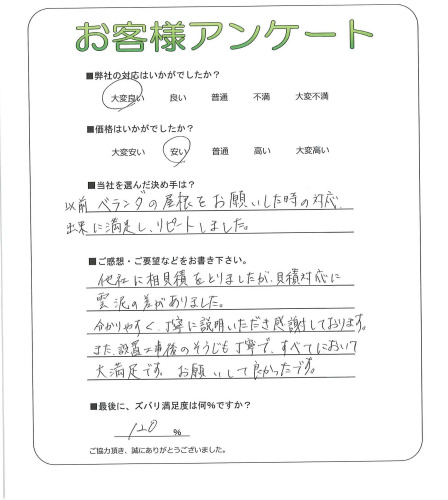 お客様アンケート
■弊社の対応はいかがでしたか?
大変良い 良い 普通 不満 大変不満
■価格はいかがでしたか?
大変安い 安い 普通 高い 大変高い
■当社を選んだ決め手は?
以前 ベランダの屋根をお願いした時の対応、
出来に満足し、リピートしました。
■ご感想・ご要望などをお書き下さい。
他社に相見積をとりましたが、見積対応に
雲泥の差がありました。
分かりやすく、丁寧に説明いただき感謝しております。
また、設置工事後のそうじも丁寧で、すべてにおいて
大満足です。 お願いして良かったです。
■最後に、ズバリ満足度は何%ですか?
120 %
ご協力頂き、誠にありがとうございました。